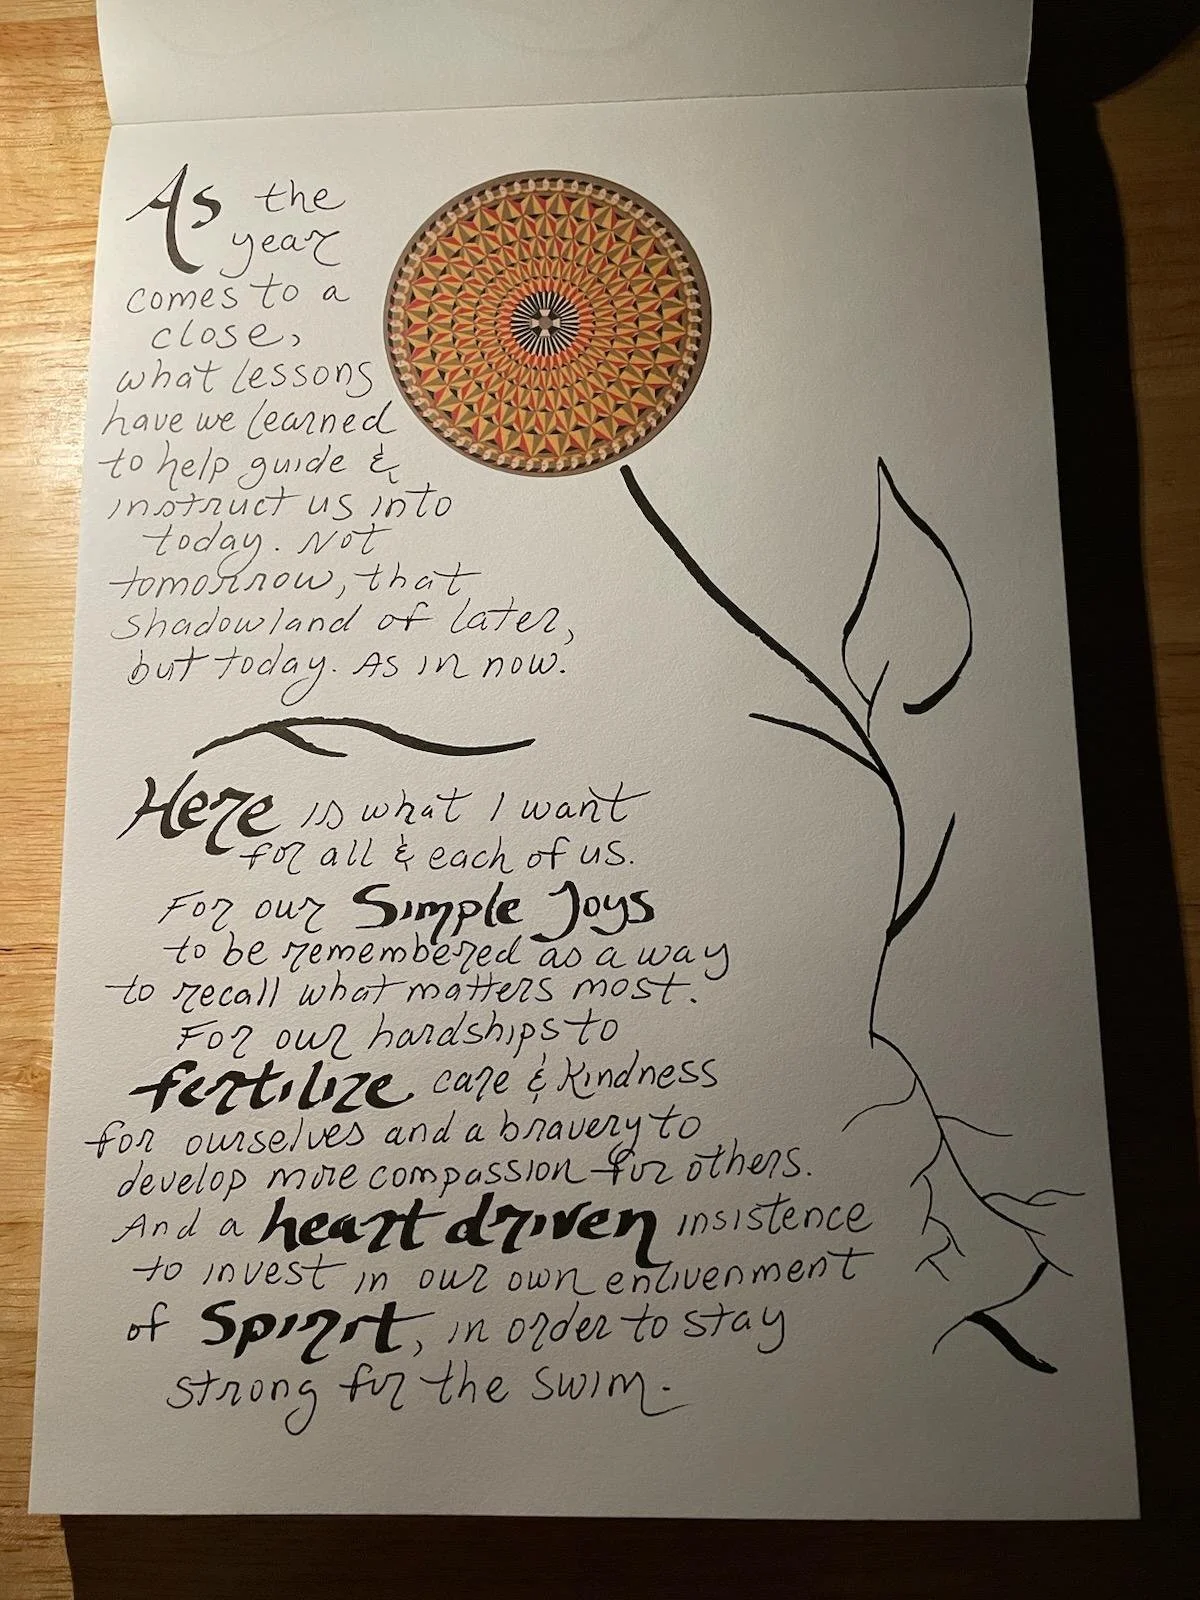 As the
year
comes to a
close,
what lessons
have we learned
to help guide &
instruct us into
today. Not
tomorrow, that
shadowland of later,
but today. As in now.
Here is what I want
for all & each of us.
For our Simple Joys
to be remembered as a way
to recall what matters most.
For our hardships to
fertilize care & kindness
for ourselves and a bravery to
develop more compassion for others.
And a heart driven insistence
to invest in our own enlivenment
of Spirit, in order to stay
strong for the swim.